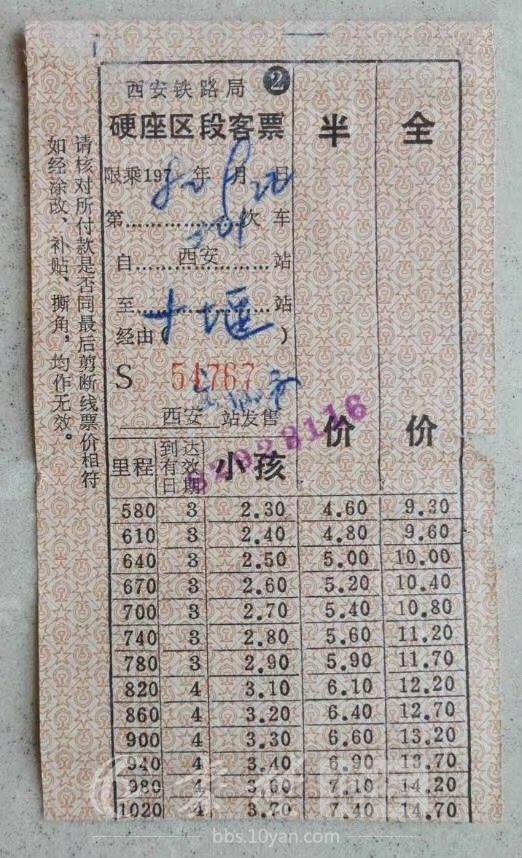 西安铁路局 2
硬座区段客票
限乘197 年 月 日
第 次车
自 西安 站
至 十堰 站
经由( )
S 54767
西安 站发售
半价
全价
里程 到达有效日期 小孩
580 3 2.30 4.60 9.30
610 3 2.40 4.80 9.60
640 3 2.50 5.00 10.00
670 3 2.60 5.20 10.40
700 3 2.70 5.40 10.80
740 3 2.80 5.60 11.20
780 3 2.90 5.90 11.70
820 4 3.10 6.10 12.20
860 4 3.20 6.40 12.70
900 4 3.30 6.60 13.20
940 4 3.40 6.90 13.70
980 4 3.60 7.10 14.20
1020 4 3.70 7.40 14.70
请核对所付款是否同最后剪断线票价相符
如经涂改、补贴、撕角，均作无效。
bbs.10yan.com